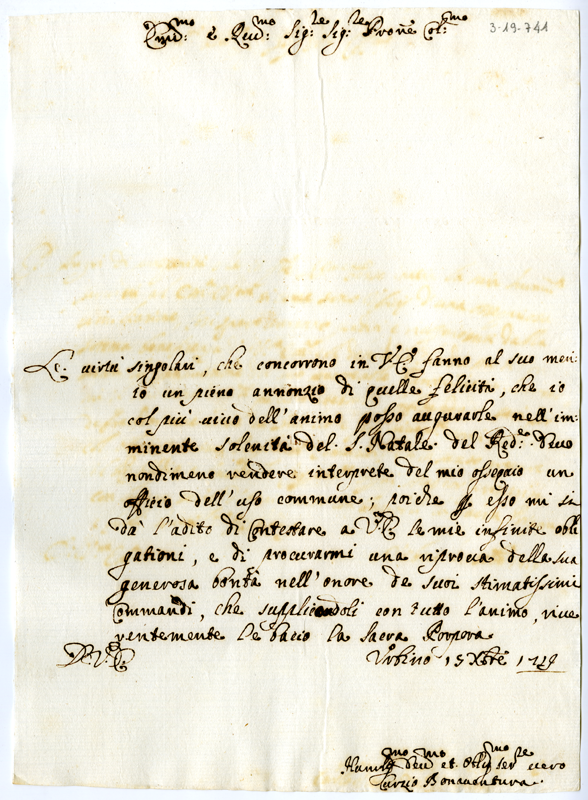 Em.mo e Reu.mo Sig.re Sig.re Prone Col.mo
3-19-741
Le uirtù singolari, che concorrono in V.E. fanno al suo meri-
to un pieno annonzio di quelle felicità, che io
col più uiuo dell'animo posso augurarle nell'im=
minente solenità del S. Natale del Red.e Deuo
nondimeno rendere interprete del mio ossequio un
officio dell'uso commune; poiche p esso mi si
dà l'adito di Contestare a V.E. le mie infinite obli
gationi, e di procurarmi una riproua della sua
generosa bontà nell'onore de suoi stimatissimi
Commandi, che supplicandoli con tutto l'animo, riue
rentemente le bacio la Sacra Porpora
D.V.E. Vrbino 15 Xbre
Humil.mo Deu.mo et Oblig.mo Ser.re uero
Curzio Bonauentura